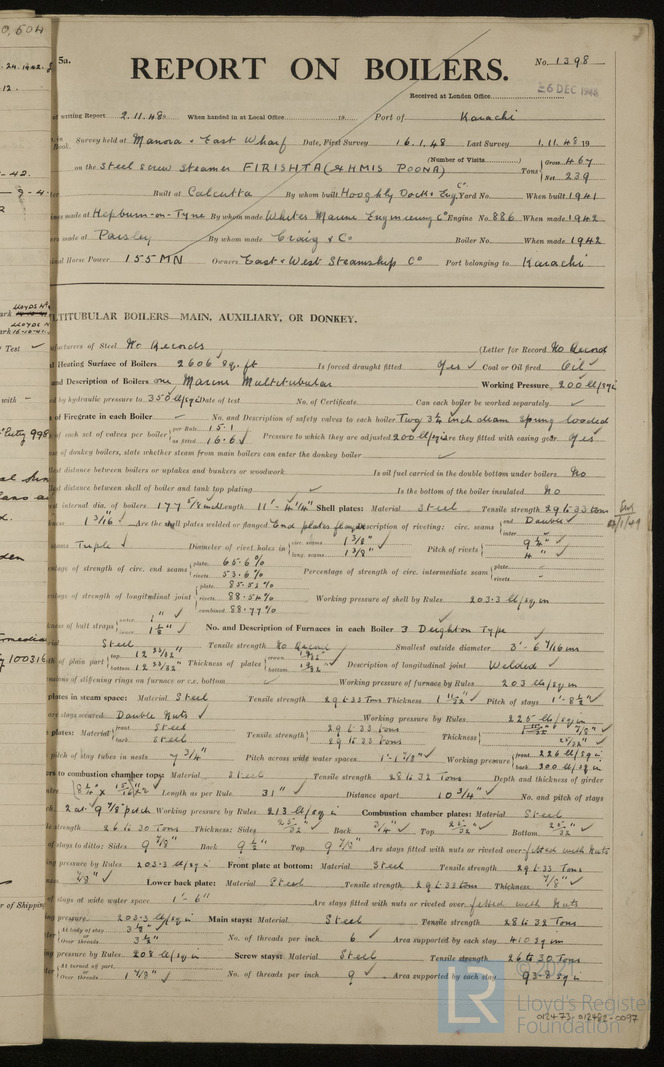 5a.
No. 1398
REPORT ON BOILERS.
Received at London Office
-6 DEC 1948
of writing Report 2.11.48 When handed in at Local Office 19 Port of Karachi
Survey held at Manora & East Wharf Date, First Survey 16.1.48 Last Survey 1.11.48 19
(Number of Visits)
on the Steel Screw Steamer FIRISHTA (Ex HMIS POONA) Tons Gross 467 Net 239
Built at Calcutta By whom built Hooghly Dock & Eng. Co. Yard No. When built 1941
made at Hepburn-on-Tyne By whom made Whites Marine Engineering Co Engine No. 886 When made 1942
made at Paisley By whom made Craig & Co Boiler No. When made 1942
Horse Power 155 MN Owners East & West Steamship Co Port belonging to Karachi
LTITUBULAR BOILERS—MAIN, AUXILIARY, OR DONKEY.
facturers of Steel No Records (Letter for Record No Record
Heating Surface of Boilers 2606 sq. ft Is forced draught fitted Yes Coal or Oil fired Oil
and Description of Boilers one Marine Multitubular Working Pressure 200 lb/sq.i
by hydraulic pressure to 350 lb/sq.i Date of test No. of Certificate Can each boiler be worked separately
of Firegrate in each Boiler No. and Description of safety valves to each boiler Two 3¼ inch diam spring loaded
of each set of valves per boiler per Rule 15.1 as fitted 16.6 Pressure to which they are adjusted 200 lb/sq.i Are they fitted with easing gear Yes
of donkey boilers, state whether steam from main boilers can enter the donkey boiler
distance between boilers or uptakes and bunkers or woodwork Is oil fuel carried in the double bottom under boilers No
distance between shell of boiler and tank top plating Is the bottom of the boiler insulated No
internal dia. of boilers 177 Length 11' - 4¼" Shell plates: Material Steel Tensile strength 29 to 33 tons
1 3/16 Are the shell plates welded or flanged End plates flanged Description of riveting: circ. seams end Double inter
Triple Diameter of rivet holes in circ. seams 1 3/8" long. seams 1 3/8" Pitch of rivets 9¼" 4"
of strength of circ. end seams plate 65.6% rivets 53.6% Percentage of strength of circ. intermediate seam plate rivets
of strength of longitudinal joint plate 85.53% rivets 88.54% combined 88.77% Working pressure of shell by Rules 203.3 lb/sq in
of butt straps outer 1" inner 1 1/8" No. and Description of Furnaces in each Boiler 3 Deighton Type
Steel Tensile strength No Record Smallest outside diameter 3' - 6 7/16 ins
of plain part top bottom Thickness of plates crown bottom Description of longitudinal joint Welded
of stiffening rings on furnace or c.c. bottom Working pressure of furnace by Rules 203 lb/sq in
plates in steam space: Material Steel Tensile strength 29 to 33 Tons Thickness 1 11/32 Pitch of stays 1' - 8½"
are stays secured Double Nuts Working pressure by Rules 225 lb/sq in
plates: Material front Steel back Steel Tensile strength 29 to 33 Tons 29 to 33 Tons Thickness
pitch of stay tubes in nests 7 3/4" Pitch across wide water spaces 1' - 1 7/8" Working pressure front 226 lb/sq.i back 200 lb/sq.i
to combustion chamber tops: Material Steel Tensile strength 28 to 32 Tons Depth and thickness of girder
Length as per Rule 31" Distance apart 10 3/4" No. and pitch of stays
2 at 9 7/8" pitch Working pressure by Rules 213 lb/sq in Combustion chamber plates: Material Steel
strength 26 to 30 Tons Thickness: Sides 25/32" Back 3/4" Top 25/32" Bottom 25/32"
of stays to ditto: Sides 9 7/8" Back 9½" Top 9 7/8" Are stays fitted with nuts or riveted over fitted with Nuts
pressure by Rules 203.3 lb/sq i Front plate at bottom: Material Steel Tensile strength 29 to 33 Tons
7/8" Lower back plate: Material Steel Tensile strength 29 to 33 Tons Thickness 7/8"
of stays at wide water space 1' - 6" Are stays fitted with nuts or riveted over fitted with Nuts
pressure 203.3 lb/sq in Main stays: Material Steel Tensile strength 28 to 32 Tons
At body of stay 3½" or Over threads 3½" No. of threads per inch 6 Area supported by each stay 410 sq in
pressure by Rules 208 lb/sq in Screw stays: Material Steel Tensile strength 26 to 30 Tons
At turned off part or Over threads 1 7/8" No. of threads per inch 9 Area supported by each stay 93.8 sq i
LR
© 2021
Lloyd's Register
Foundation
012473-012482-0097